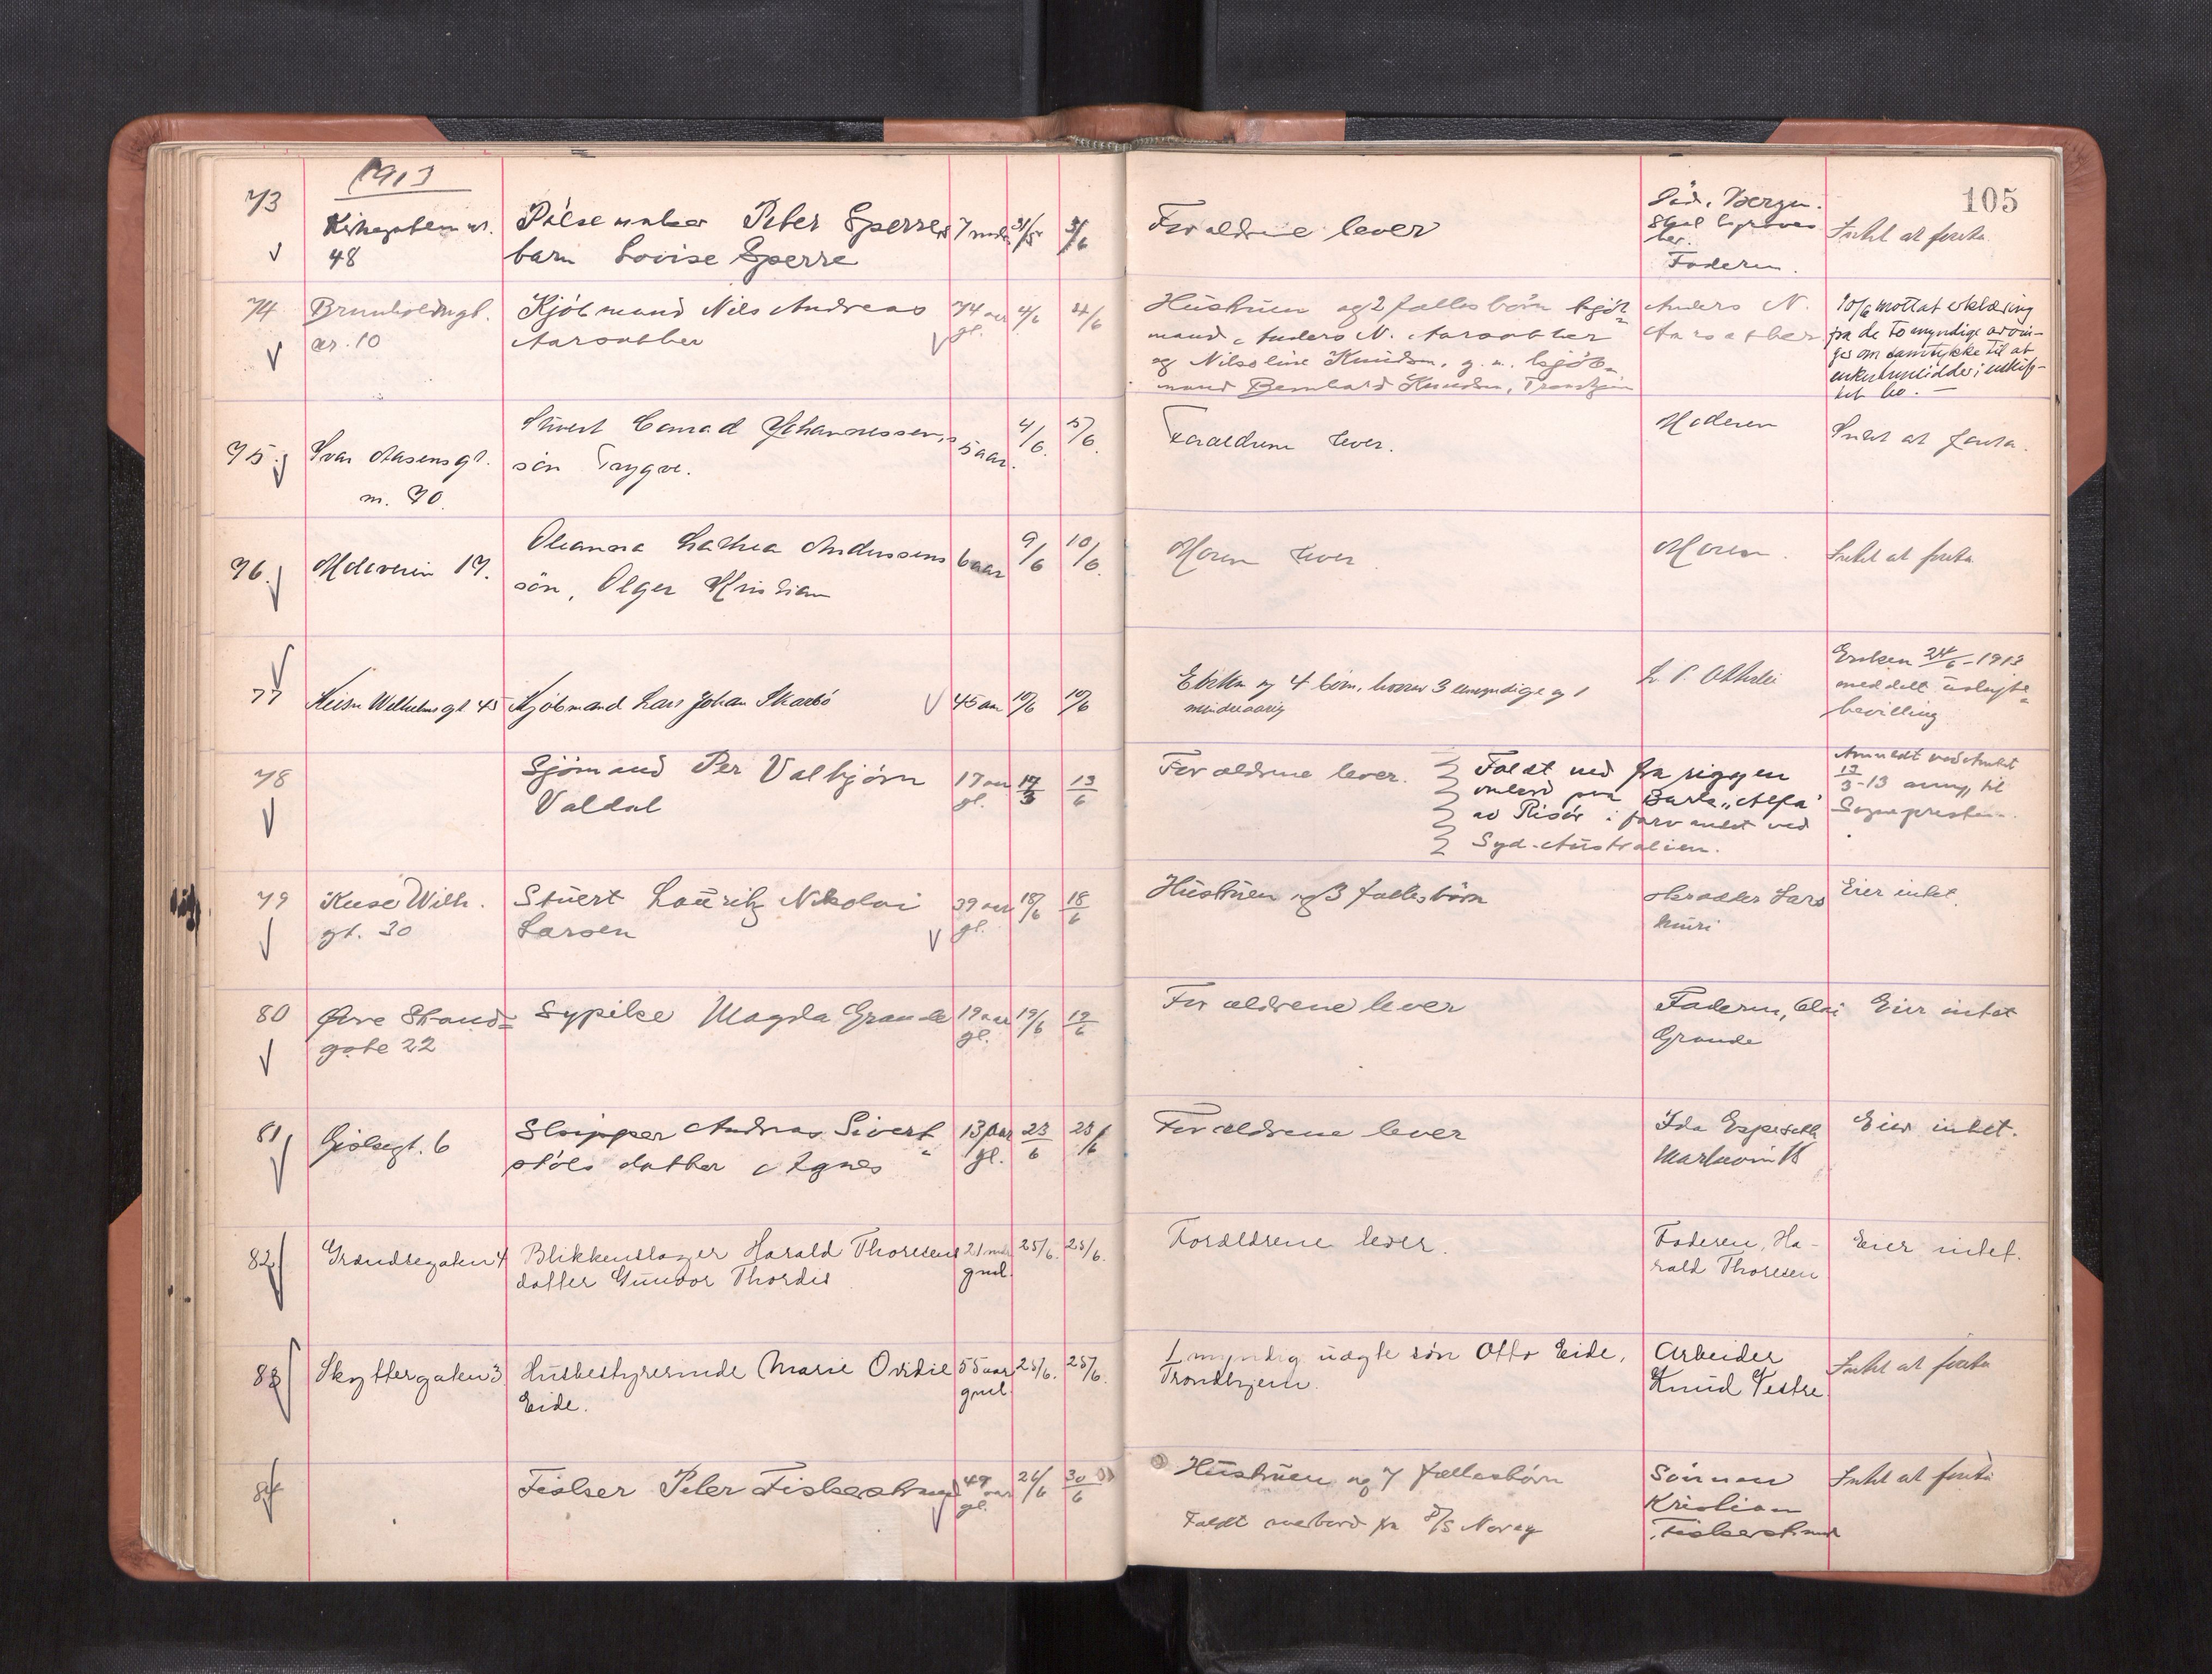 1913
105
73
Kirkegaten nr.
48
Pölsemaker Peter Sperres
barn Lovise Sperre
7 mdr
31/5
3/6
Forældrene lever
Död i Bergen.
Skal begraves
her.
Faderen.
Intet at foreta
74
Brunholdngt.
nr. 10
Kjöbmand Nils Andreas
Aarsæther
74 aar
gl.
4/6
4/6
Hustruen og 2 fællesbörn kjöb-
mand Anders N. Aarsæther
og Nilsoline Knudsen, g. m. kjöb-
mand Bernhard Knudsen, Trondhjem
Anders N.
Aarsæther
10/6 mottat erklæring
fra de to myndige arvin-
ger om samtykke til at
enken hensidder i uskif-
tet bo. -
75
Ivar Aasensgt.
nr. 70.
Stuert Conrad Johannessens
sön Trygve.
5 aar.
4/6.
5/6.
Forældrene lever.
Moderen
Intet at foreta.
76.
Moloveien 17.
Oleanna Lathea Andersens
sön, Olger Kristian
6 aar
9/6
10/6.
Moren lever
Moren.
Intet at foreta
77
Keiser Wilhelms gt. 45
Kjöbmand Lars Johan Skarbö
45 aar
10/6
10/6
Enken og 4 börn, hvorav 3 umyndige og 1
mindreaarig
L. P. Otterlei
Enken 24/6-1913
meddelt uskifte-
bevilling
78
Sjömand Per Valbjörn
Valdal
17 aar
gl.
17/3
13/6
Forældrene lever.
Faldt ned fra riggen
ombord paa Bark "Alfa"
av Risör i farvandet ved
Syd-Australien.
Anmeldt ved Amtet
13/3-13 til
Sognepresten.
79
Keise Wilh.
gt. 30
Stuert Lauritz Nikolai
Larsen
39 aar
gl.
18/6
18/6
Hustruen og 3 fællesbörn
Skrædder Lars
Muri
Eier intet.
80
Övre Strand-
gate 22
Sypike Magda Grande
19 aar
gl.
19/6
19/6
Forældrene lever
Faderen, Elai
Grande
Eier intet
81
Gjölsgt. 6
Skipper Andreas Sivert-
stöls datter Agnes
13 aar
gl.
23/6
23/6
Forældrene lever
Ida Esperseth
Eier intet.
82
Grændsegaten 4
Blikkenslager Harald Thoresens
datter Gunvor Thordis
21 mdr
gml.
25/6.
25/6.
Forældrene lever.
Faderen, Ha-
rald Thoresen
Eier intet.
83
Skyttergaten 3
Husbestyrerinde Marie Ovidie
Eide.
55 aar
gml.
25/6.
25/6.
1 myndig uægte sön Otto Eide,
Trondhjem.
Arbeider
Knud Vestre
Intet at foreta
84
Fisker Peter Fiskerstrand
49 aar
gl.
26/6
30/6
Hustruen og 7 fællesbörn
Faldt overbord fra D/S Norög
Sönnen
Kristian
Fiskerstrand
Intet at foreta